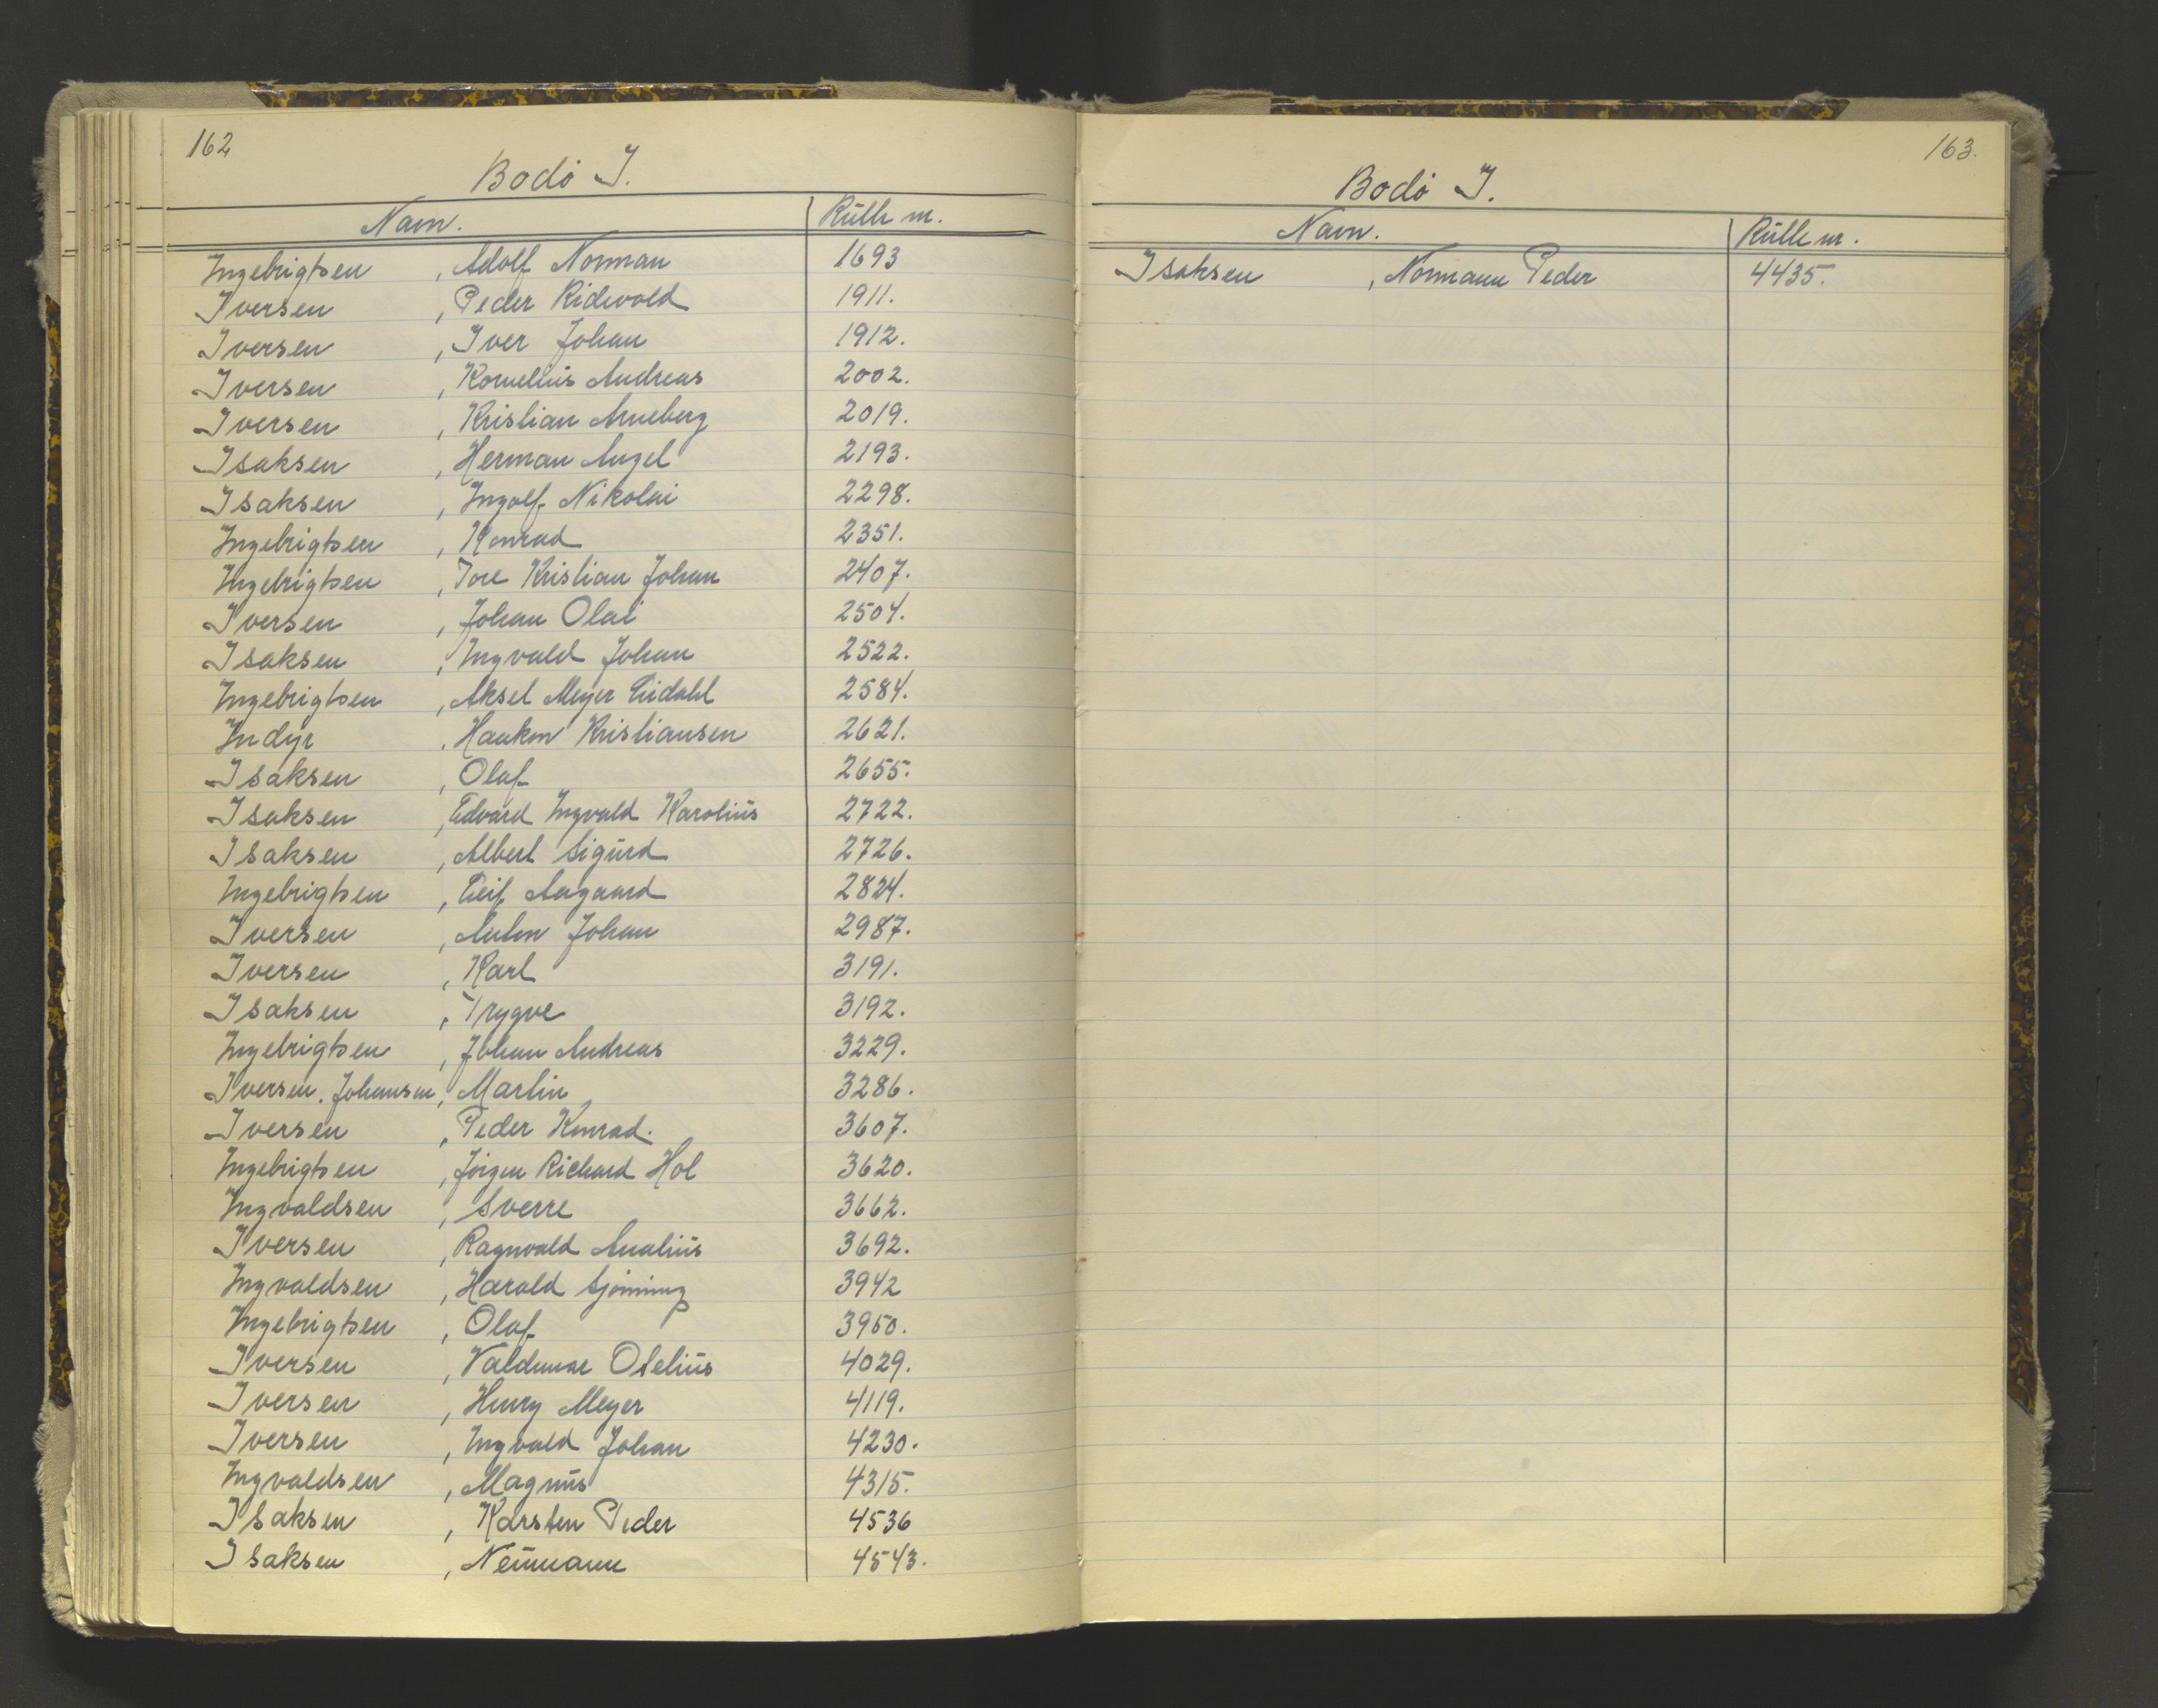 162
Bodö I.
Navn. Rulle nr.
Ingebrigtsen , Adolf Norman 1693
Iversen , Peder Ridevold 1911.
Iversen , Iver Johan 1912.
Iversen , Kornelius Andreas 2002.
Iversen , Kristian Arneberg 2019.
Isaksen , Herman Angel 2193.
Isaksen , Ingolf Nikolai 2298.
Ingebrigtsen , Konrad 2351.
Ingebrigtsen , Tore Kristian Johan 2407.
Iversen , Johan Olai 2504.
Isaksen , Ingvald Johan 2522.
Ingebrigtsen , Aksel Meyer Eidahl 2584.
Indyr , Haakon Kristiansen 2621.
Isaksen , Olaf 2655.
Isaksen , Edvard Ingvald Karolius 2722.
Isaksen , Albert Sigurd 2726.
Ingebrigtsen , Leif Aagaard 2824.
Iversen , Anton Johan 2987.
Iversen , Karl 3191.
Isaksen , Trygve 3192.
Ingebrigtsen , Johan Andreas 3229.
Iversen. Johansen , Martin 3286.
Iversen , Peder Konrad. 3607.
Ingebrigtsen , Jörgen Richard Hol 3620.
Ingvaldsen , Sverre 3662.
Iversen , Ragnvald Analius 3692.
Ingvaldsen , Harald Sjönning 3942
Ingebrigtsen , Olaf 3950.
Iversen , Valdemar Otelius 4029.
Iversen , Henry Meyer 4119.
Iversen , Ingvald Johan 4230.
Ingvaldsen , Magnus 4315.
Isaksen , Karsten Peder 4536
Isaksen , Neumann 4543.
163.
Bodö I.
Navn. Rulle nr.
Isaksen , Normann Peder 4435.